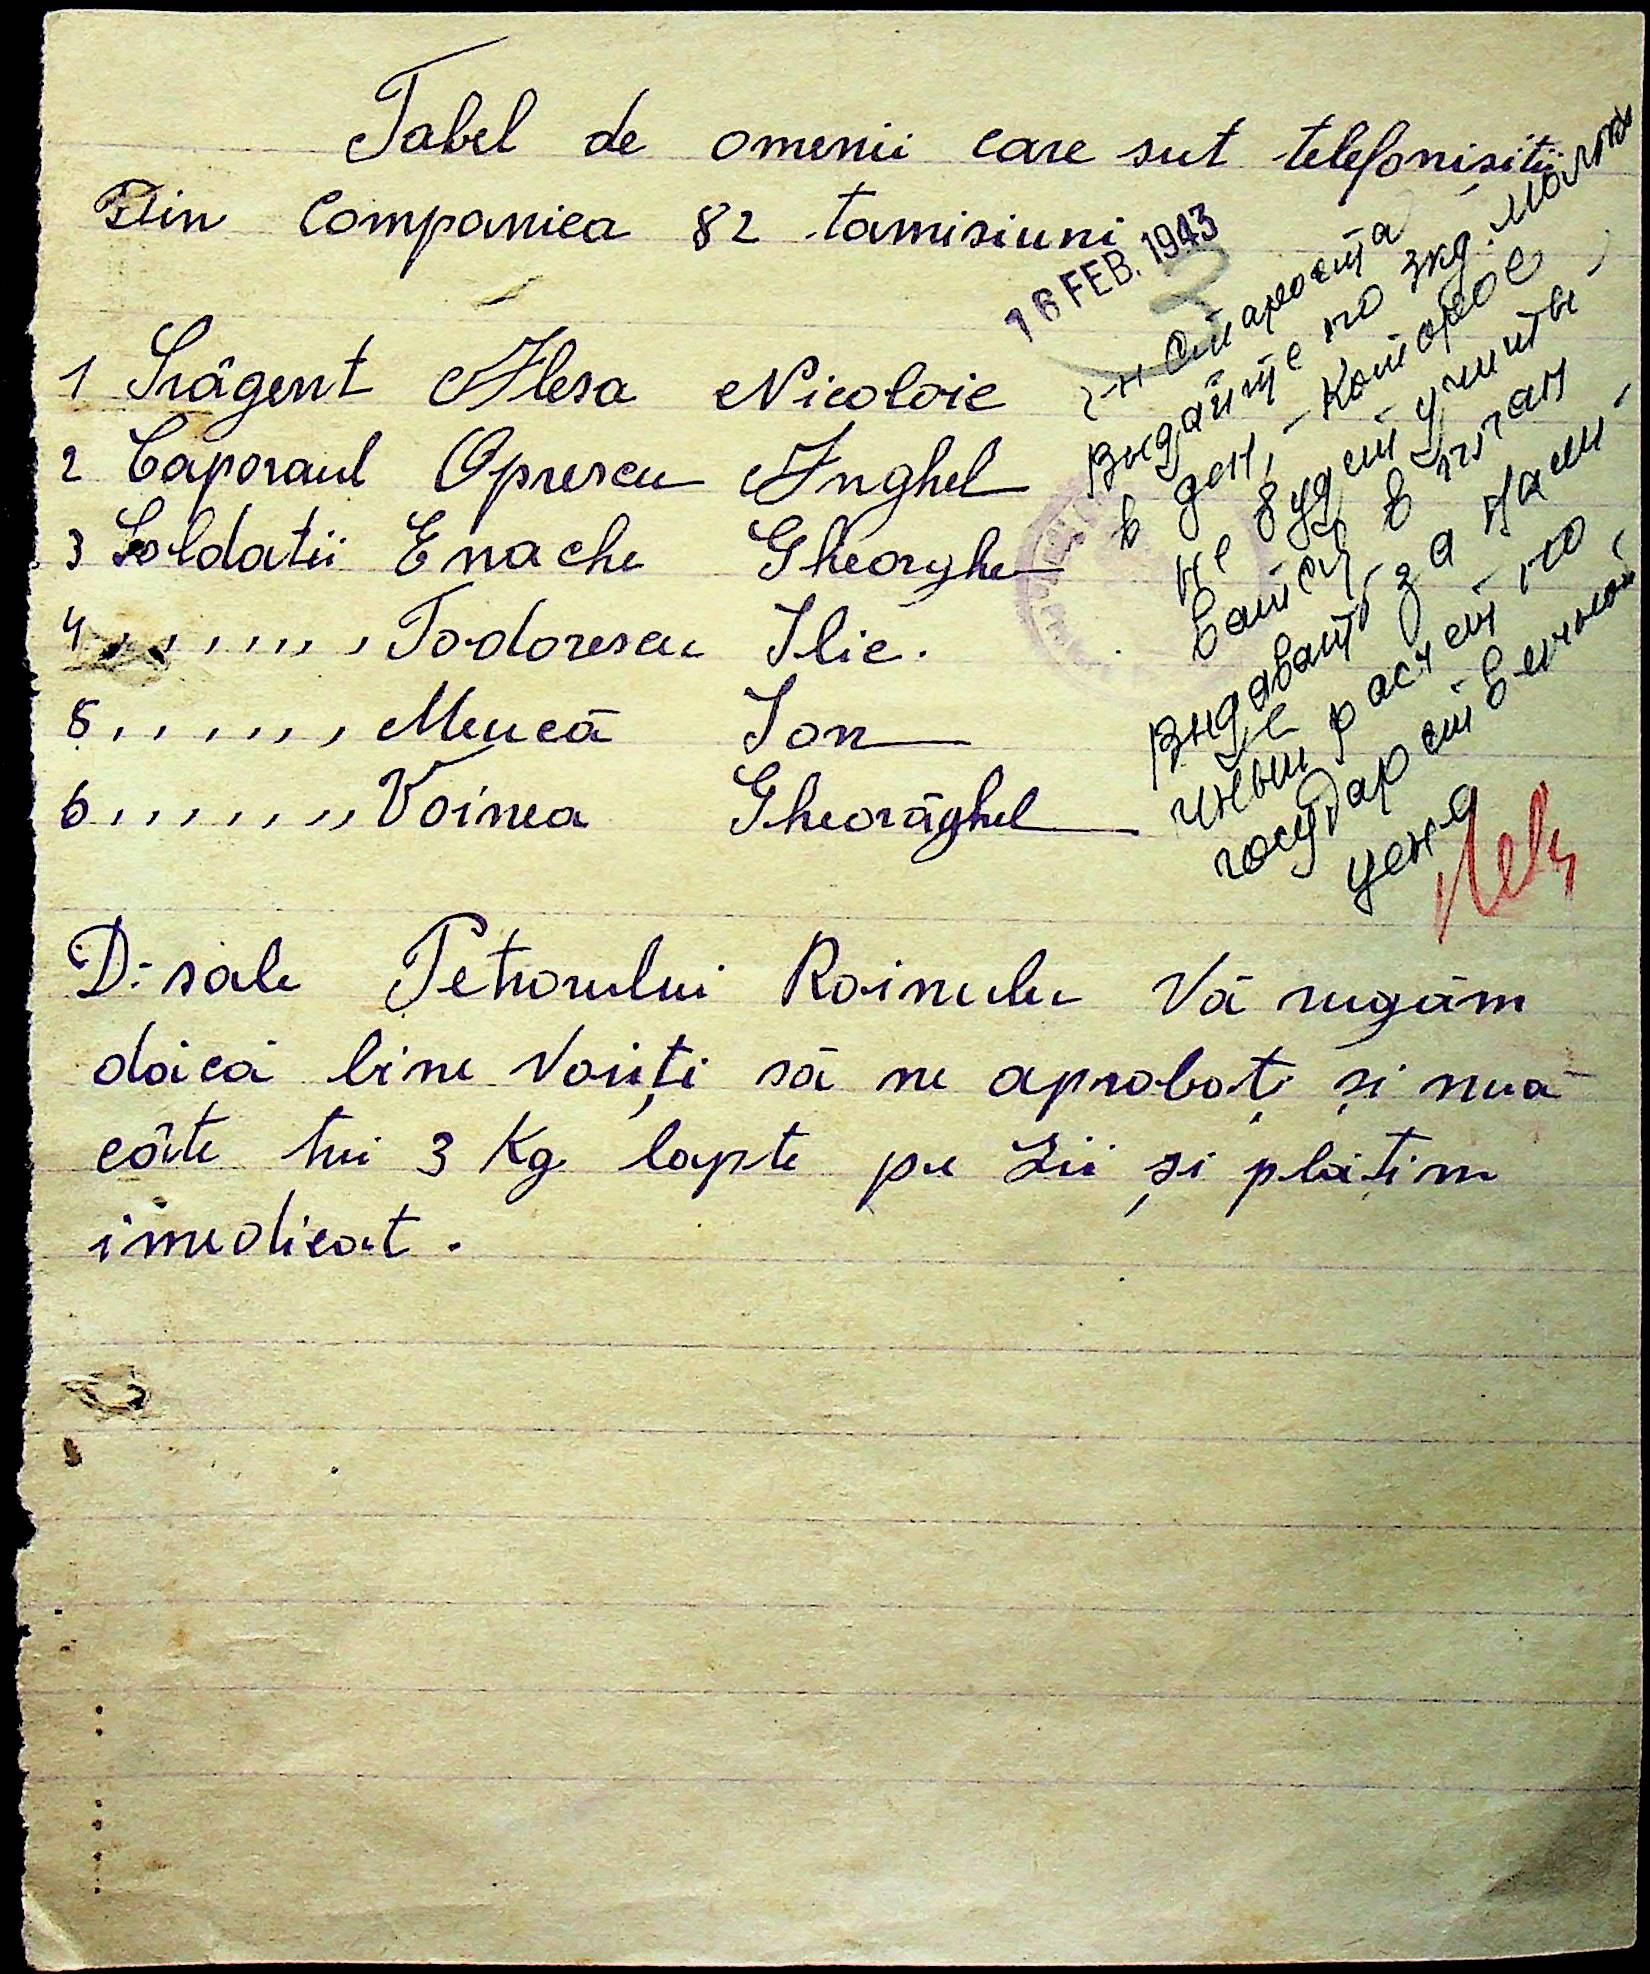 Tabel de omenii care sut telefonișitii
Din Companiea 82 tamisiuni
16 FEB. 1943
1 Srâgent Alesa Nicolaie
2 Caporaul Oprescu Anghel
3 Soldatii Enache Gheorghe
4 , , , , , , , , Todorescu Ilie.
5 , , , , , , , Meucă Ion
6 , , , , , , , , Voinea Gheorăghel
г-н Староста
Выдайте по 3кд. молока
в ден, - которое
не будет учиты-
ваться в план
Выдавать за налич-
ный расчет по
государственной
цене
D-sale Petrorului Roinului Vă rugăm
dăică bine Voiiți să ne aprobați și nua
câte tui 3 Kg lapte pe zii și plătim
imedieat.